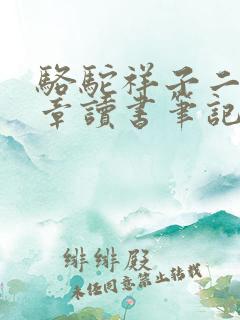 駱駝祥子二
章讀書筆記
緋緋殿
未经同意禁止转载